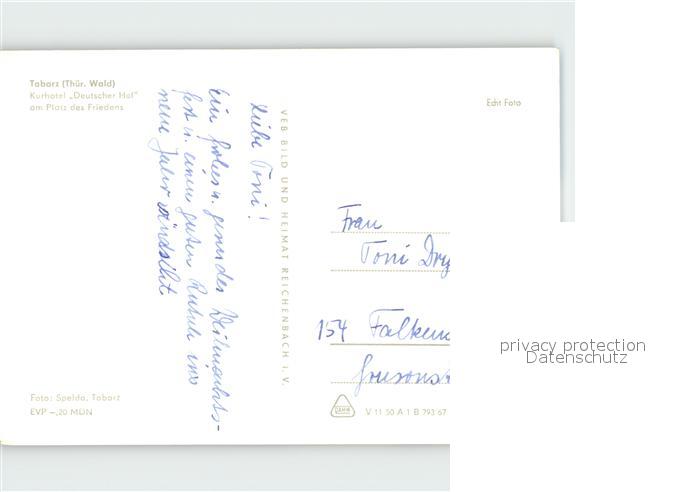 Tabarz (Thür. Wald)
Kurhotel „Deutscher Hof"
am Platz des Friedens
Echt Foto
Liebe Toni!
Ein frohes u. gesundes Weihnachts-
fest u. einen guten Rutsch ins
neue Jahr wünscht
VEB BILD UND HEIMAT REICHENBACH I. V.
Frau
Toni Dry
154 Falken
Foto: Spelda, Tabarz
EVP –,20 MDN
V 11 50 A 1 B 793 67
privacy protection
Datenschutz